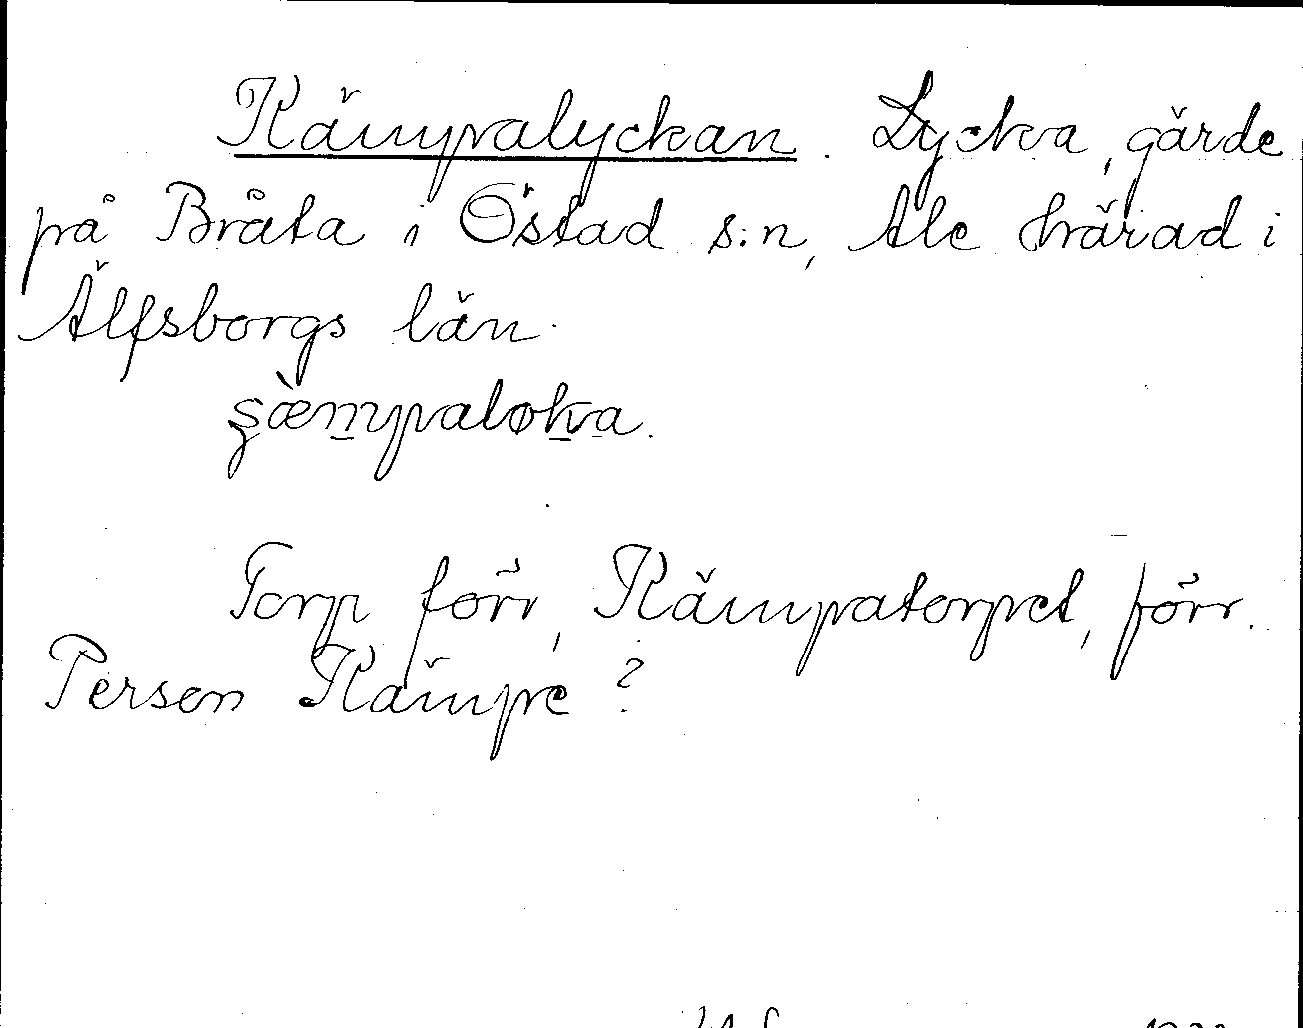 Kämpalyckan. Lycka, gärde
på Bråta i Östad s:n, Ale härad i
Älfsborgs län.
s̷æ̀mpaløka.
Torp förr, Kämpatorpet, förr.
Person Kämpe?